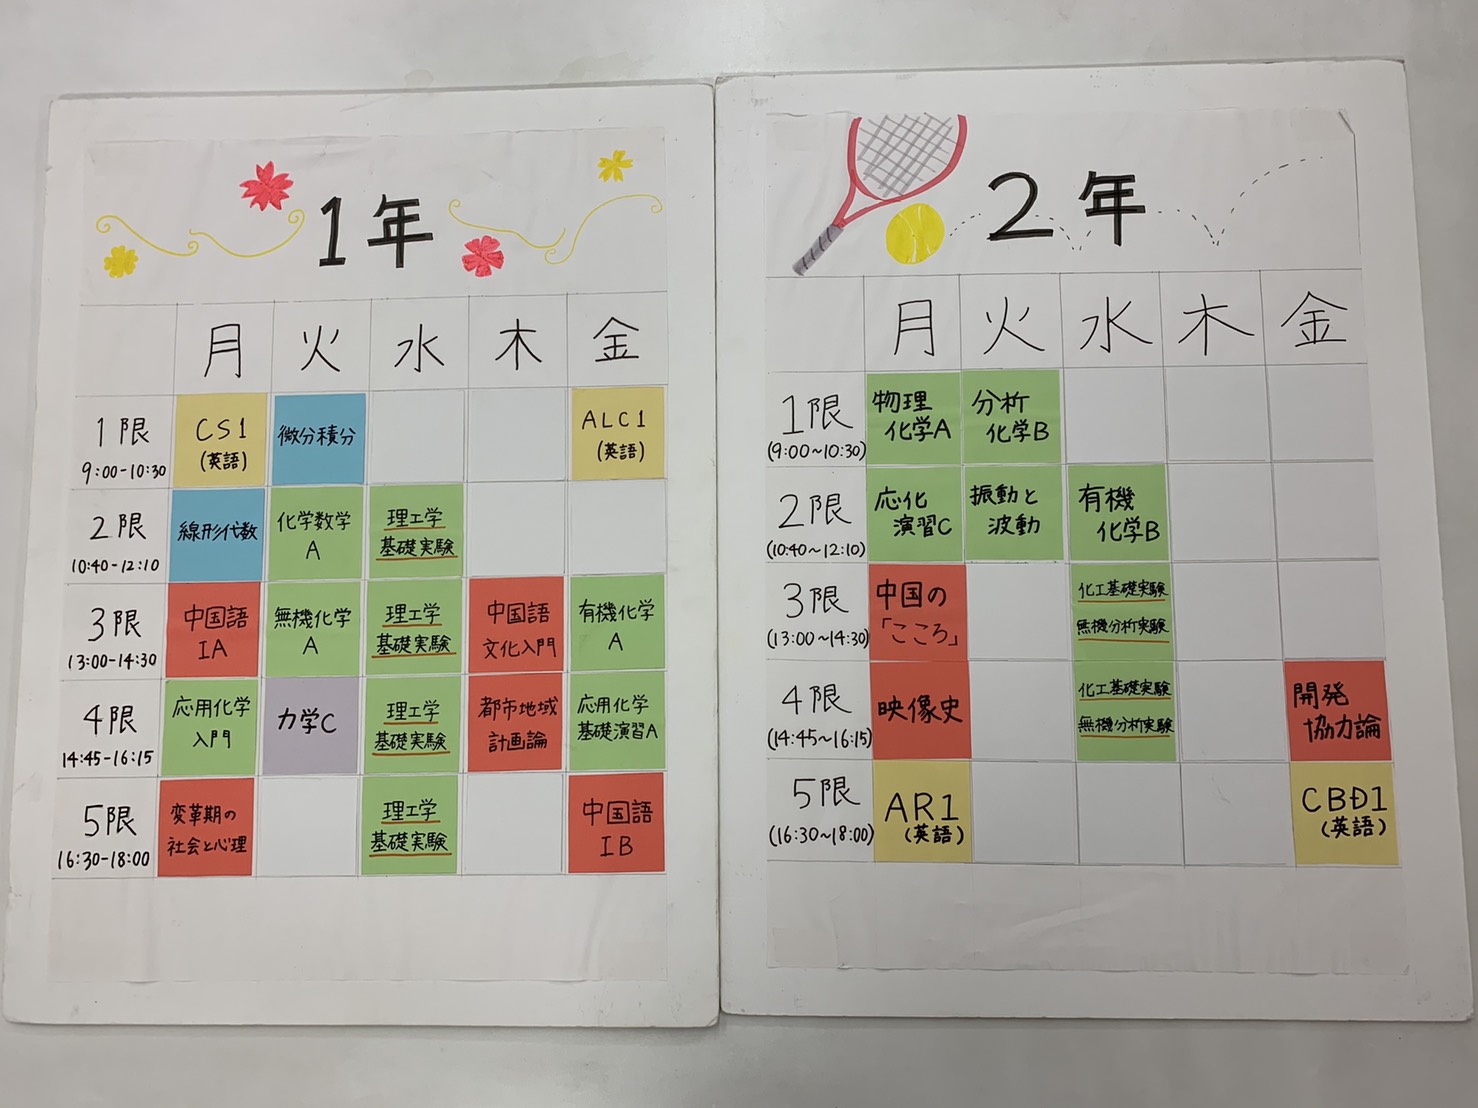 1年
月 火 水 木 金
1限
9:00-10:30
CS1
(英語)
微分積分
ALC1
(英語)
2限
10:40-12:10
線形代数
化学数学
A
理工学
基礎実験
3限
13:00-14:30
中国語
IA
無機化学
A
理工学
基礎実験
中国語
文化入門
有機化学
A
4限
14:45-16:15
応用化学
入門
力学C
理工学
基礎実験
都市地域
計画論
応用化学
基礎演習A
5限
16:30-18:00
変革期の
社会と心理
理工学
基礎実験
中国語
IB
2年
月 火 水 木 金
1限
(9:00~10:30)
物理
化学A
分析
化学B
2限
(10:40~12:10)
応化
演習C
振動と
波動
有機
化学B
3限
(13:00~14:30)
中国の
「こころ」
化工基礎実験
無機分析実験
4限
(14:45~16:15)
映像史
化工基礎実験
無機分析実験
開発
協力論
5限
(16:30~18:00)
AR1
(英語)
CBD1
(英語)